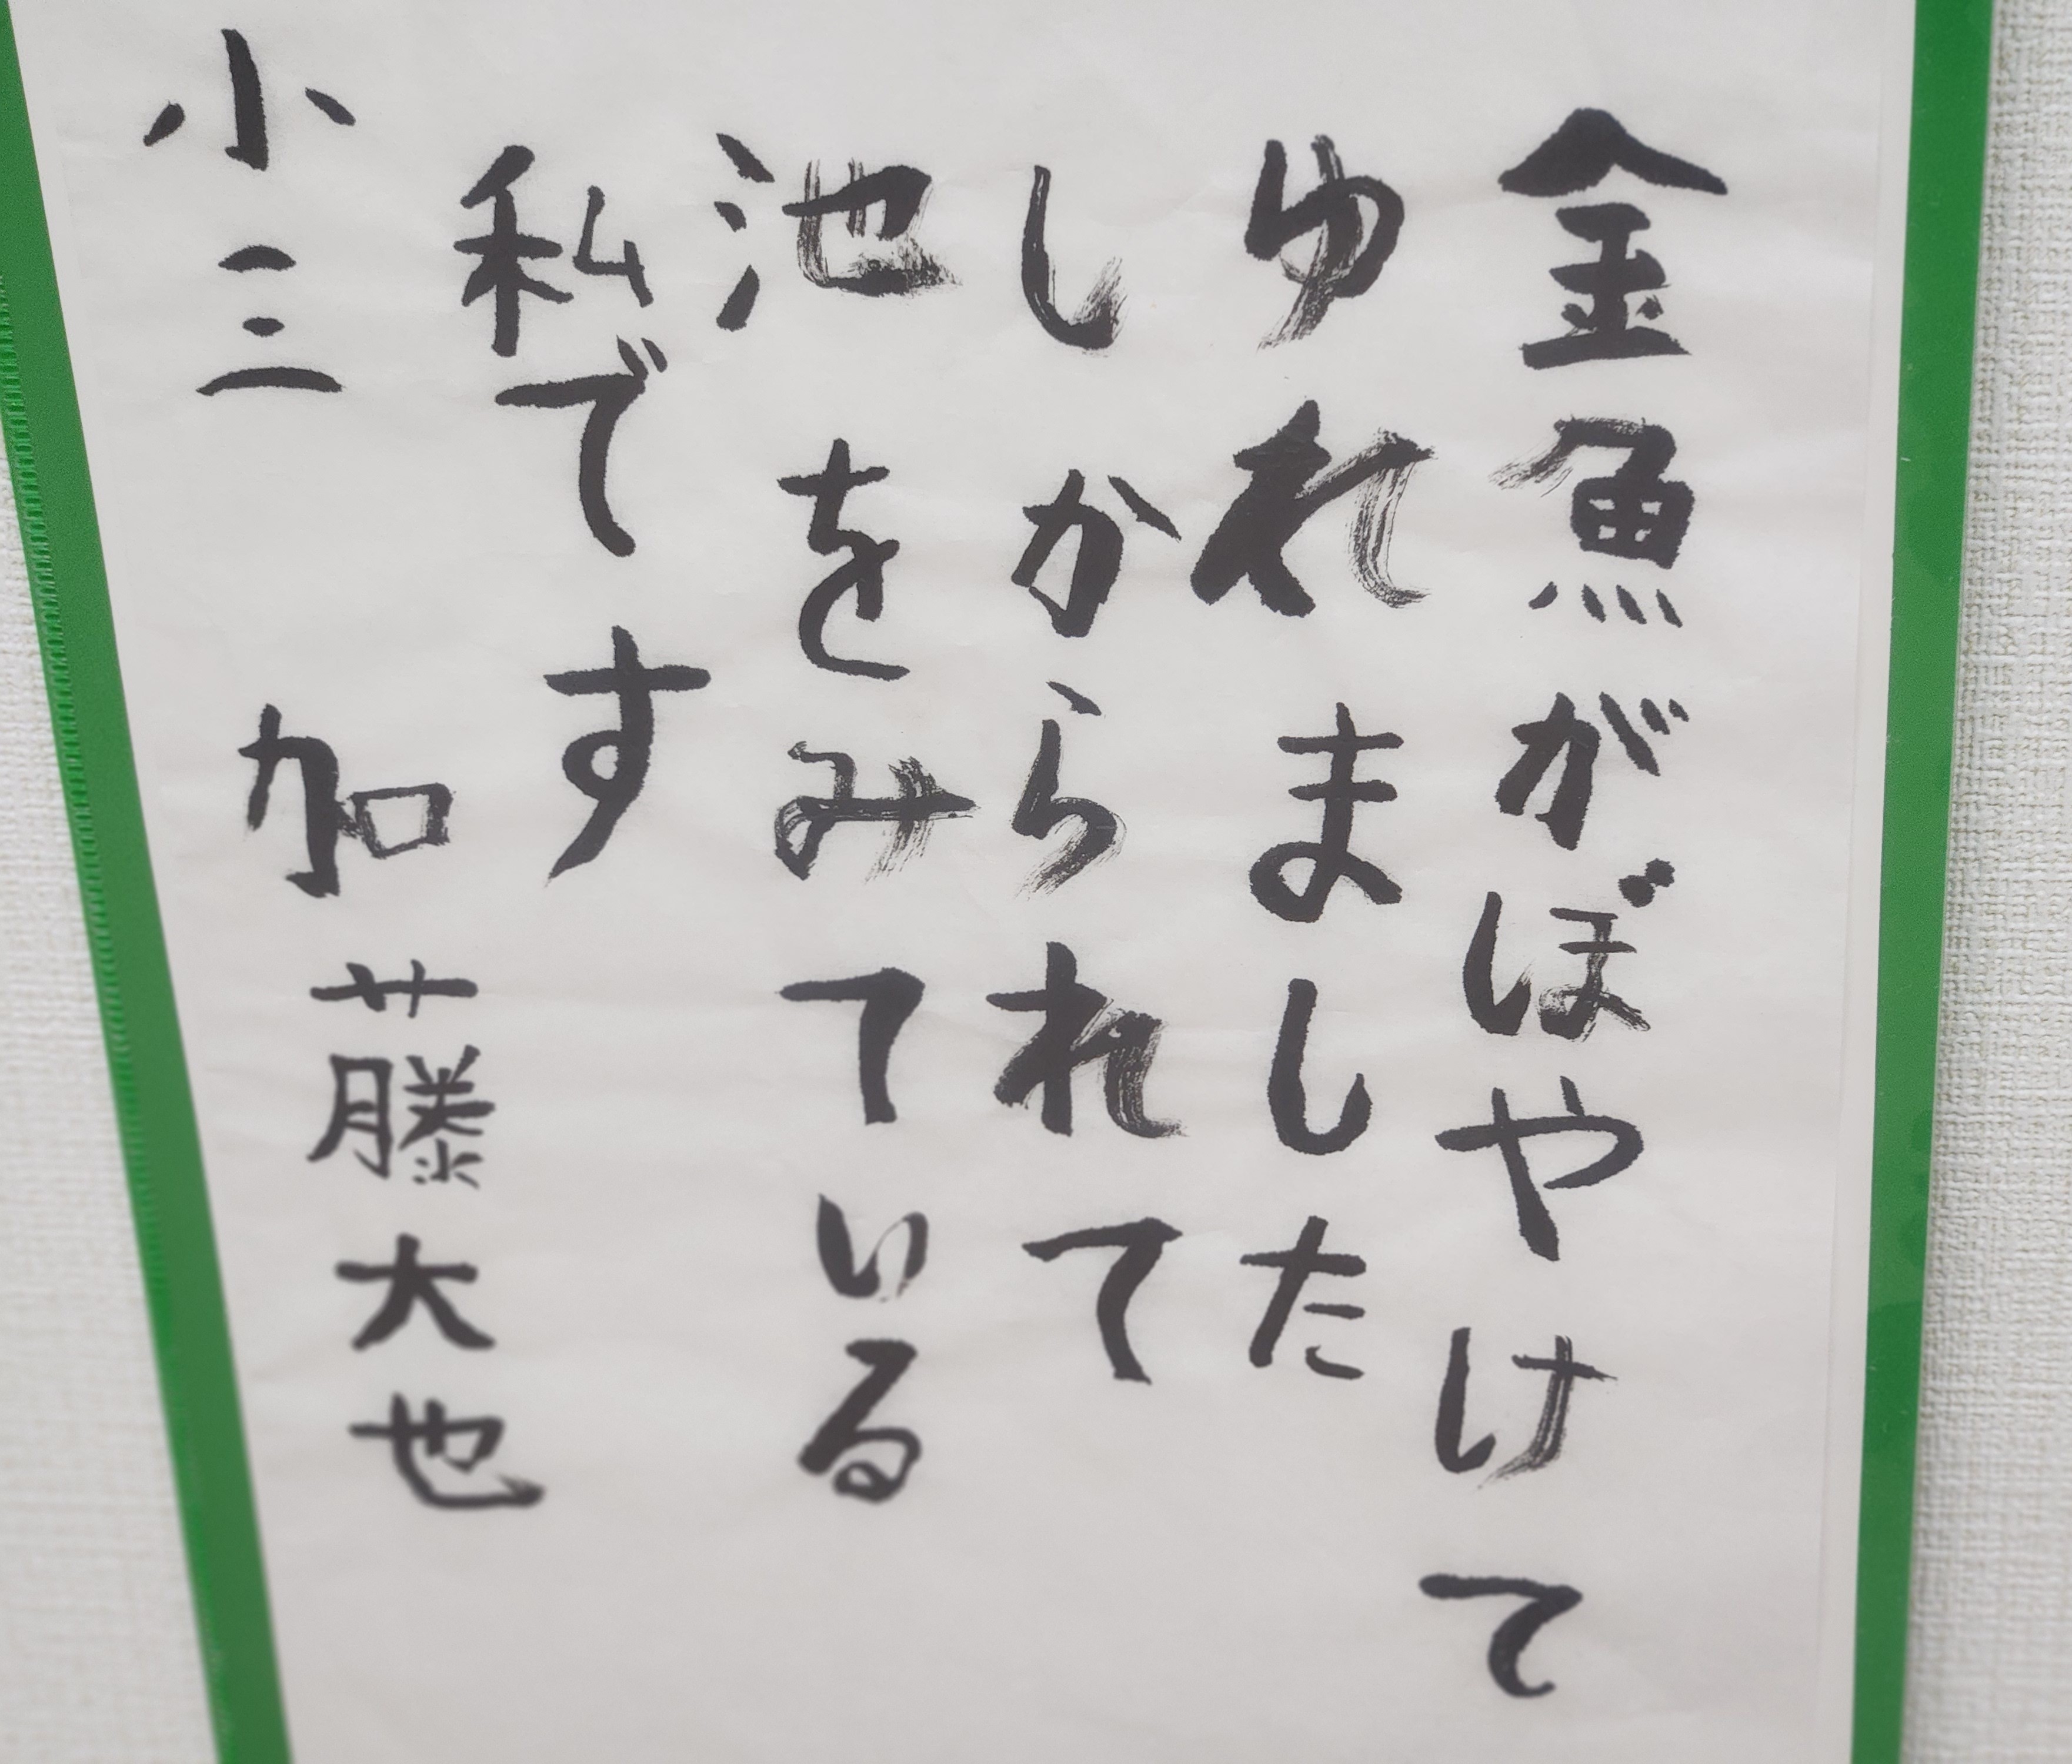 金魚がぼやけて
ゆれました
しかられて
池をみている
私です
小三 加藤大也